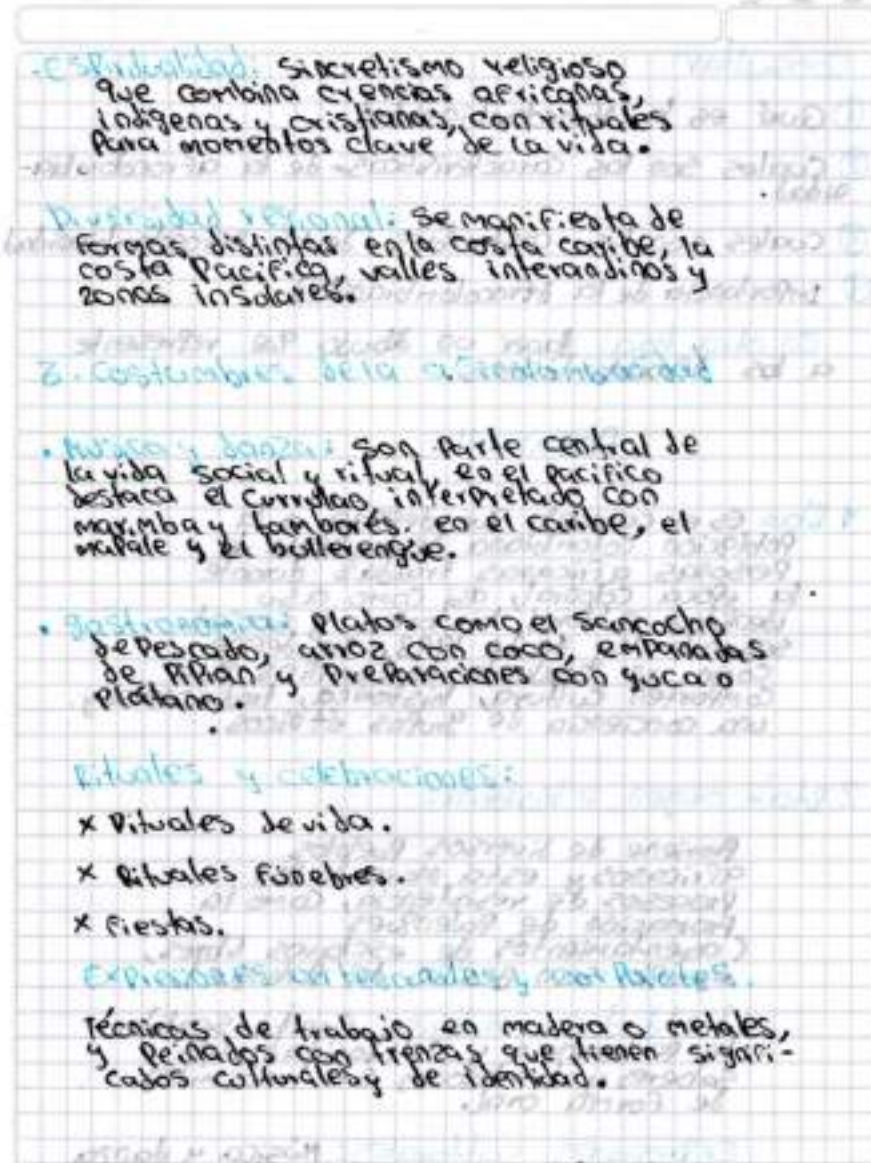 ·Espiritualidad: Sincretismo religioso
que combina creencias africanas,
indígenas y cristianas, con rituales
para momentos clave de la vida.
Diversidad regional: Se manifiesta de
formas distintas en la costa caribe, la
costa Pacífica, valles interandinos y
zonas insulares.
3. Costumbres de la afrocolombianidad
• Música y danza: Son parte central de
la vida social y ritual, en el pacifico
destaca el Currulao, interpretado con
marimba y tambores. en el caribe, el
mapale y el bullerengue.
• Gastronómica: Platos como el Sancocho
de Pescado, arroz con coco, empanadas
de Pipian y Preparaciones con yuca o
plátano.
Rituales y celebraciones:
x Rituales de vida.
x Rituales Fúnebres.
x Fiestas.
Expresiones artesanales y corporales.
Técnicas de trabajo en madera o metales,
y Peinados con trenzas que tienen signifi-
cados culturales y de identidad.